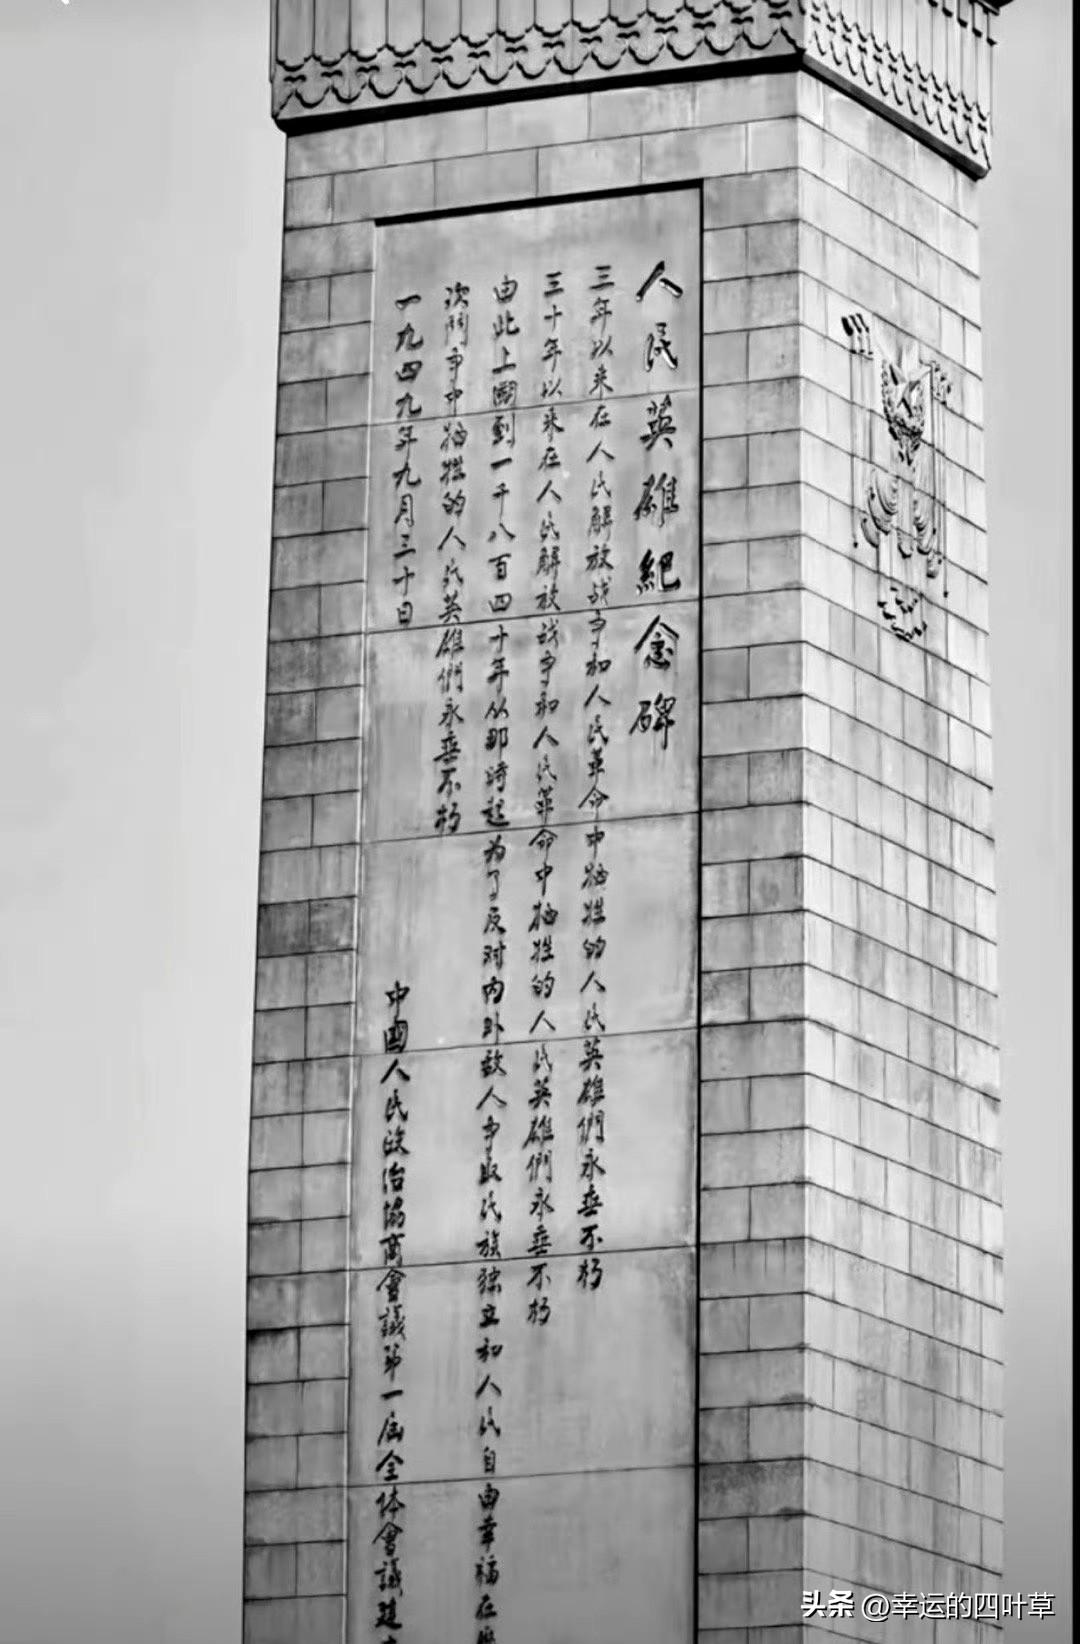 人民英雄紀念碑
三年以来在人民解放战争和人民革命中牺牲的人民英雄們永垂不朽
三十年以来在人民解放战争和人民革命中牺牲的人民英雄們永垂不朽
由此上溯到一千八百四十年从那時起为了反对内外敌人争取民族独立和人民自由幸福在
次鬥争中牺牲的人民英雄們永垂不朽
一九四九年九月三十日
中國人民政治協商會議第一届全体會議建
头条 @幸运的四叶草